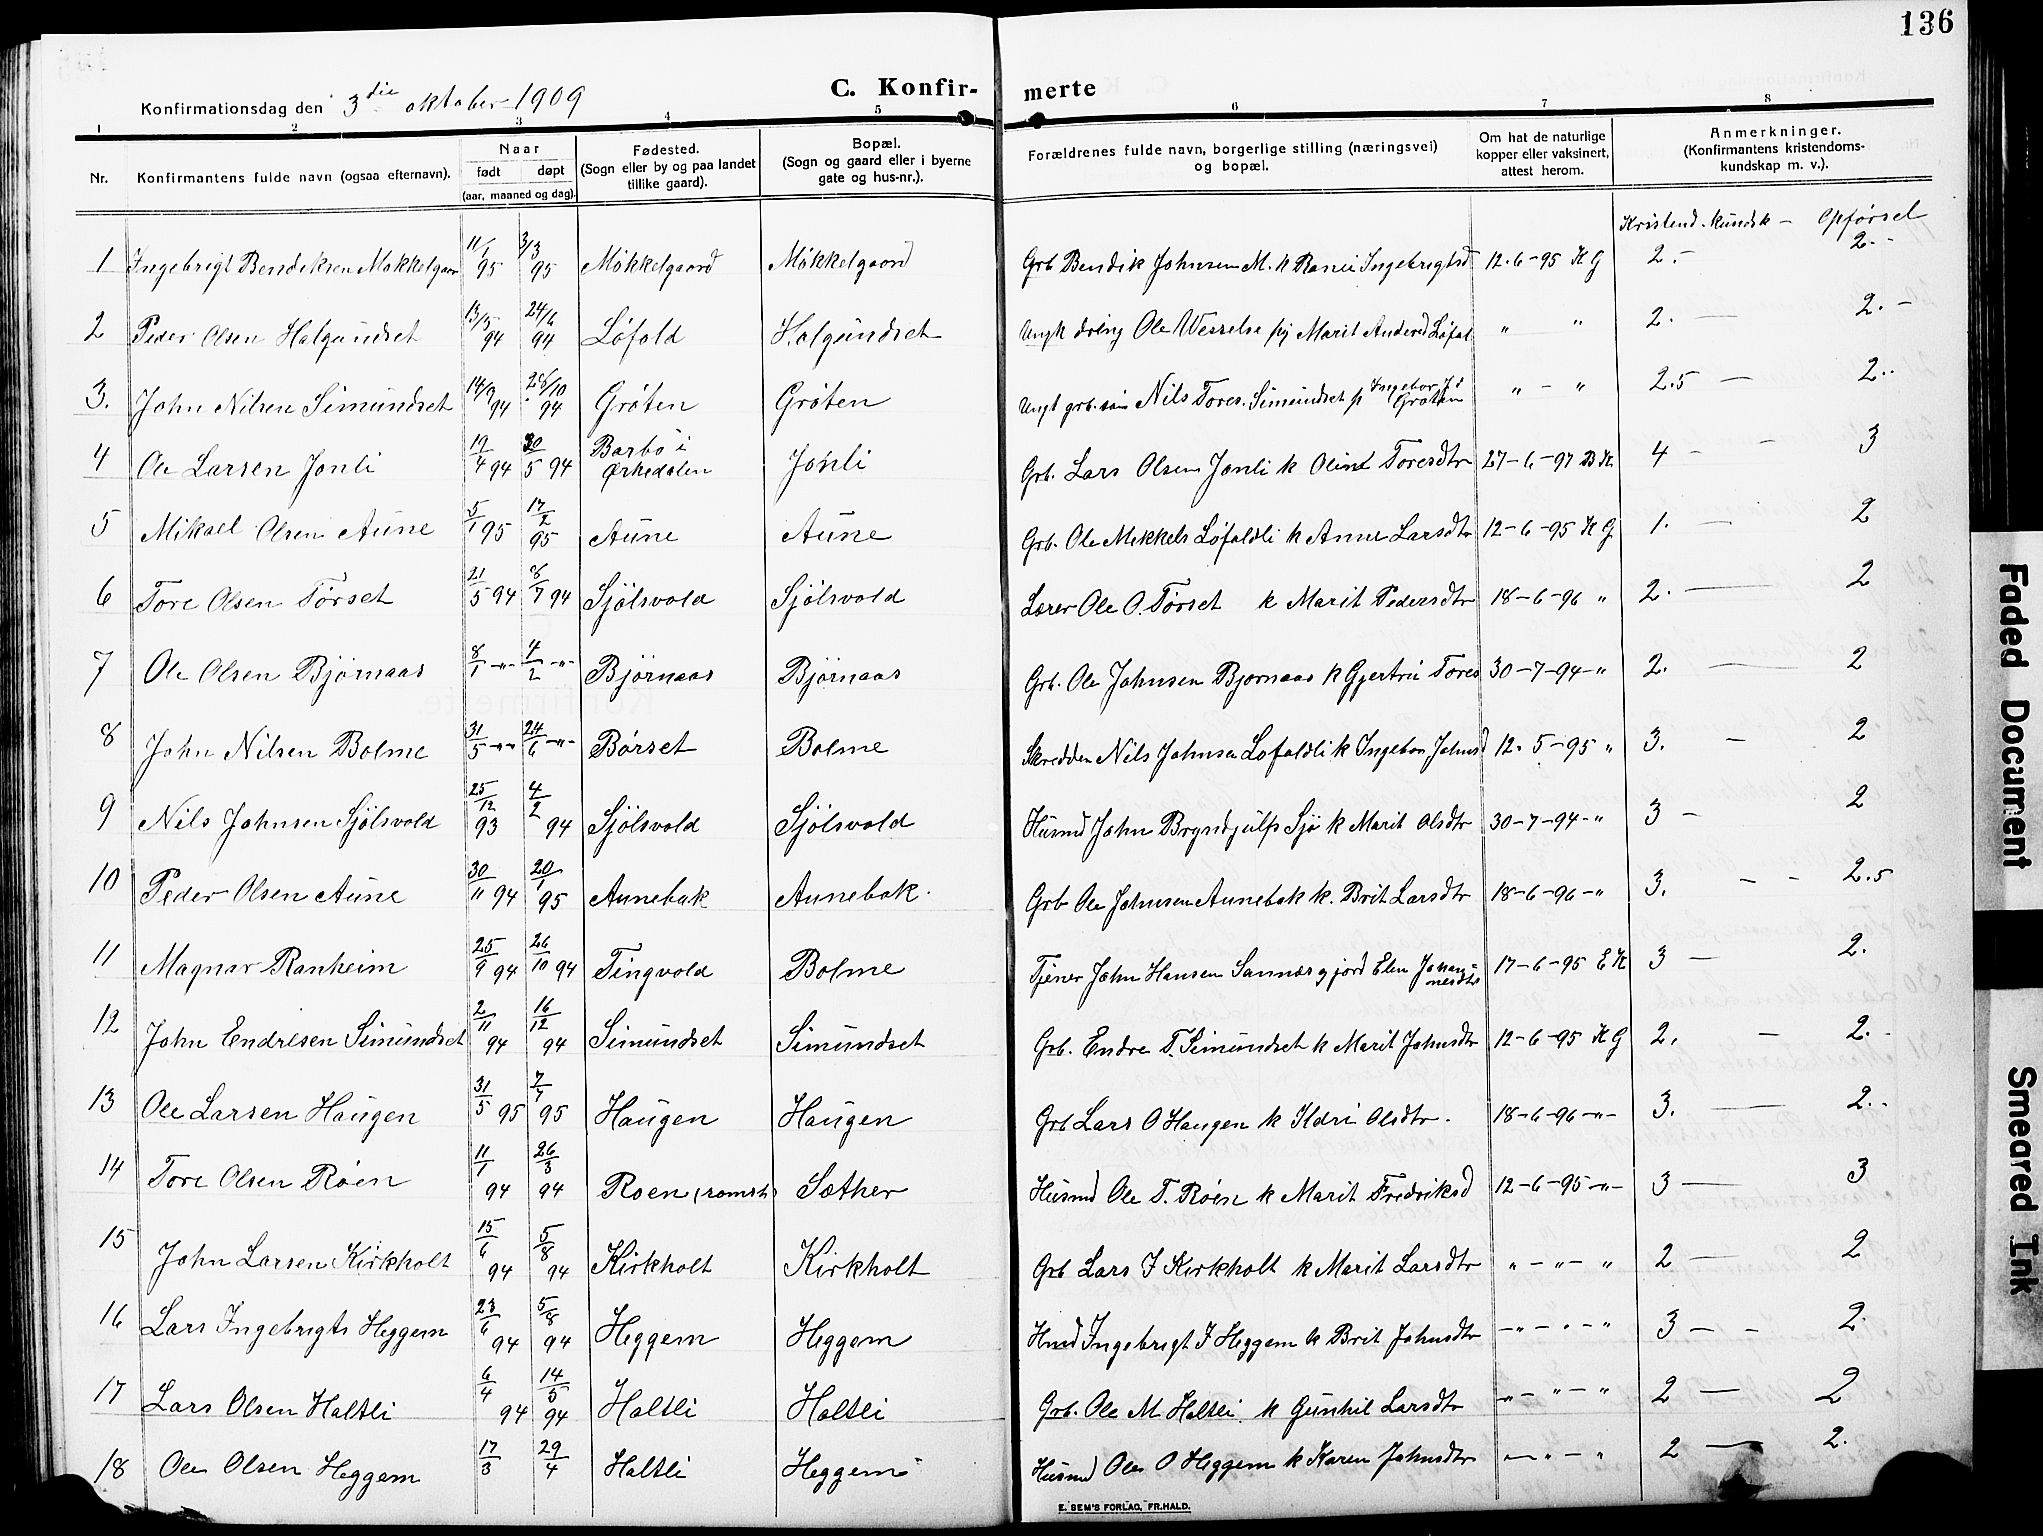 136
Konfirmationsdag den 3die oktober 1909
C. Konfir- merte
1 2 3 4 5 6 7 8
Nr.
Konfirmantens fulde navn (ogsaa efternavn).
Naar
født døpt
(aar, maaned og dag).
Fødested.
(Sogn eller by og paa landet
tillike gaard).
Bopæl.
(Sogn og gaard eller i byerne
gate og hus-nr.).
Forældrenes fulde navn, borgerlige stilling (næringsvei)
og bopæl.
Om hat de naturlige
kopper eller vaksinert,
attest herom.
Anmerkninger.
(Konfirmantens kristendoms-
kundskap m. v.).
Kristend. kundsk – Opførsel
1 Ingebrigt Bendiksen Møkkelgaar 11/1 95 3/3 95 Møkkelgaard Møkkelgaard Grb Bendik Johnsen M. k Ranei Ingebrigtsd 12-6-95 K G 2.- 2.-
2 Peder Olsen Halgundset 13/5 94 24/6 94 Løfald Halgundset Ungk dreng Ole Wessels pig Marit Andersd Løfal " " 2. — 2. –
3. John Nilsen Simundset 14/9 94 28/10 94 Grøten Grøten Ungk grb.søn Nils Tores. Simundset p Ingebor Jd Grøten " – " 2.5 — 2..
4 Ole Larsen Jonli 19/4 94 20/5 94 Barbo i Ørkedalen Jonli Grb. Lars Olsen Jonli k Oline Toresdtr 27-6-97 B K 4 - - 3
5 Mikael Olsen Aune 5/1 95 17/2 95 Aune Aune Grb. Ole Mekkels Løfaldli k Anne Larsdtr 12-6-95 K G 1. — 2
6 Tore Olsen Tørset 21/5 94 8/7 94 Sjølsvold Sjølsvold Lærer Ole O. Tørset k Marit Pedersdtr 18-6-96 " 2. — 2
7 Ole Olsen Bjørnaas 8/1 -"- 4/2 -"- Bjørnaas Bjørnaas Grb. Ole Johnsen Bjørnaas k Gjertru Tores 30-7-94-" 2. — 2
8 John Nilsen Bolme 31/5 -"- 24/6 -"- Børset Bolme Skredder Nils Johnsen Lofaldli k Ingebor Johnsd 12-5-95 " 3. – 2
9 Nils Johnsen Sjølsvold 25/12 93 4/2 94 Sjølsvold Sjølsvold Husmd John Brynhjulfs Sjø k Marit Olsdtr 30-7-94-" 3 – 2
10 Peder Olsen Aune 30/11 94 20/1 95 Aunebak Aunebak. Grb Ole Johnsen Aunebak k. Brit Larsdtr 18-6-96-" 3. – – 2.5
11 Magnar Ranheim 25/9 94 26/10 94 Tingvold Bolme Tjener John Hansen Sannæs gjord Elen Johan- nesdtr 17-6-95 E K 3 – 2.
12 John Endresen Simundset 2/11 94 16/12 94 Simundset Simundset Grb. Endre T. Simundset k Marit Johnsdtr 12-6-95 K G 2. – 2.
13 Ole Larsen Haugen 31/5 95 7/7 95 Haugen Haugen Grb Lars O Haugen k Ildri Olsdtr. 18-6-96-"- 3. — 2..
14 Tore Olsen Røen 11/1 94 26/3 94 Roen (romst) Sæther Husmd Ole T. Røen k Marit Fredriksd 12-6-95-"- 3 — 3
15 John Larsen Kirkholt 15/6 94 5/8 94 Kirkholt Kirkholt Grb Lars J Kirkholt k Marit Larsdtr " – " – " 2 — 2
16 Lars Ingebrigts Heggem 23/6 94 5/8 94 Heggem Heggem Hmd Ingebrigt J Heggem k Brit Johnsdtr –"– " –" 3 – – 2.
17 Lars Olsen Haltli 6/4 94 14/5 94 Haltli Haltli Grb. Ole M Haltli k Gunhil Larsdtr "– " – " 2 — 2
18 Ole Olsen Heggem 17/3 29/4 Haltli Heggem Husmd Ole O Heggem k Karen Johnsdtr –"–"– " 2 — 2.
E. SEM'S FORLAG, FR.HALD.
Faded Document
Smeared Ink